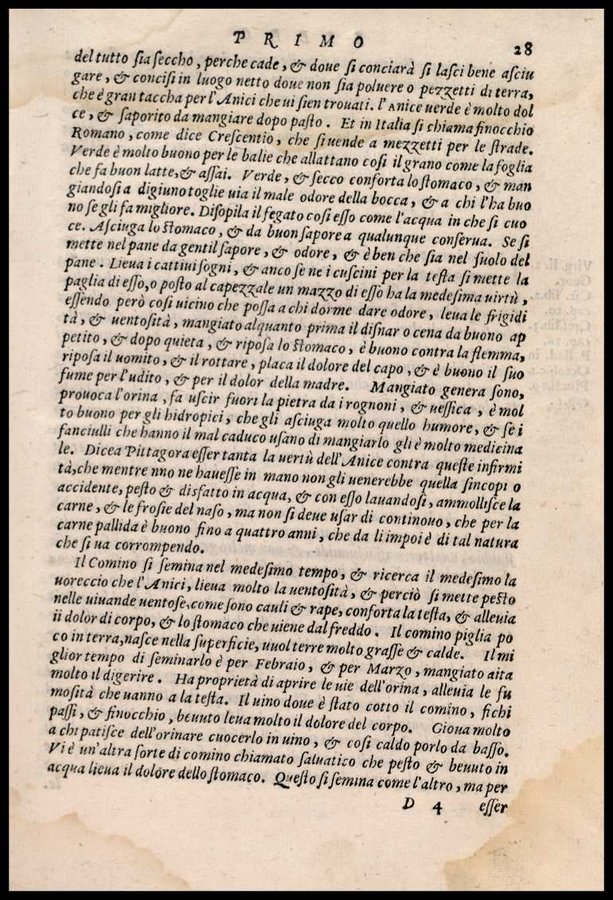 PRIMO 28
del tutto sia seccho, perche cade, & doue si conciarà si lasci bene asciu
gare, & concisi in luogo netto doue non sia poluere o pezzetti di terra,
che è gran taccha per l'Anici che ui sien trouati. l'Anice uerde è molto dol
ce, & saporito da mangiare dopo pasto. Et in Italia si chiama finocchio
Romano, come dice Crescentio, che si uende a mezzetti per le strade.
Verde è molto buono per le balie che allattano cosi il grano come la foglia
che fa buon latte, & assai. Verde, & secco conforta lo stomaco, & man
giandosi a digiuno toglie uia il male odore della bocca, & a chi l'ha buo
no se gli fa migliore. Disopila il fegato cosi esso come l'acqua in che si cuo
ce. Asciuga lo stomaco, & da buon sapore a qualunque conserua. Se si
mette nel pane da gentil sapore, & odore, & è ben che sia nel suolo del
pane. Lieua i cattiui sogni, & anco se ne i cuscini per la testa si mette la
paglia di esso, o posto al capezzale un mazzo di esso ha la medesima uirtù,
essendo però cosi uicino che possa a chi dorme dare odore, leua le frigidi
tà, & uentosità, mangiato alquanto prima il disnar o cena da buono ap
petito, & dopo quieta, & riposa lo stomaco, è buono contra la flemma,
riposa il uomito, & il rottare, placa il dolore del capo, & è buono il suo
fume per l'udito, & per il dolor della madre. Mangiato genera sono,
prouoca l'orina, fa uscir fuori la pietra da i rognoni, & uessica, è mol
to buono per gli hidropici, che gli asciuga molto quello humore, & se i
fanciulli che hanno il mal caduco usano di mangiarlo gli è molto medicina
le. Dicea Pittagora esser tanta la uertù dell'Anice contra queste infirmi
tà, che mentre nno ne hauesse in mano non gli uenerebbe quella sincopi o
accidente, pesto & disfatto in acqua, & con esso lauandosi, ammollisce la
carne, & le frosie del naso, ma non si deue usar di continouo, che per la
carne pallida è buono fino a quattro anni, che da li impoi è di tal natura
che si ua corrompendo.
Il Comino si semina nel medesimo tempo, & ricerca il medesimo la
uoreccio che l'Anici, lieua molto la uentosità, & perciò si mette pesto
nelle uiuande uentose, come sono cauli & rape, conforta la testa, & alleuia
il dolor di corpo, & lo stomaco che uiene dal freddo. Il comino piglia po
co in terra, nasce nella superficie, uuol terre molto grasse & calde. Il mi
glior tempo di seminarlo è per Febraio, & per Marzo, mangiato aita
molto il digerire. Ha proprietà di aprire le uie dell'orina, alleuia le fu
mosità che uanno a la testa. Il uino doue è stato cotto il comino, fichi
passi, & finocchio, beuuto leua molto il dolore del corpo. Gioua molto
a chi patisce dell'orinare cuocerlo in uino, & cosi caldo porlo da basso.
Vi è un'altra sorte di comino chiamato saluatico che pesto & beuuto in
acqua lieua il dolore dello stomaco. Questo si semina come l'altro, ma per
D 4 esser